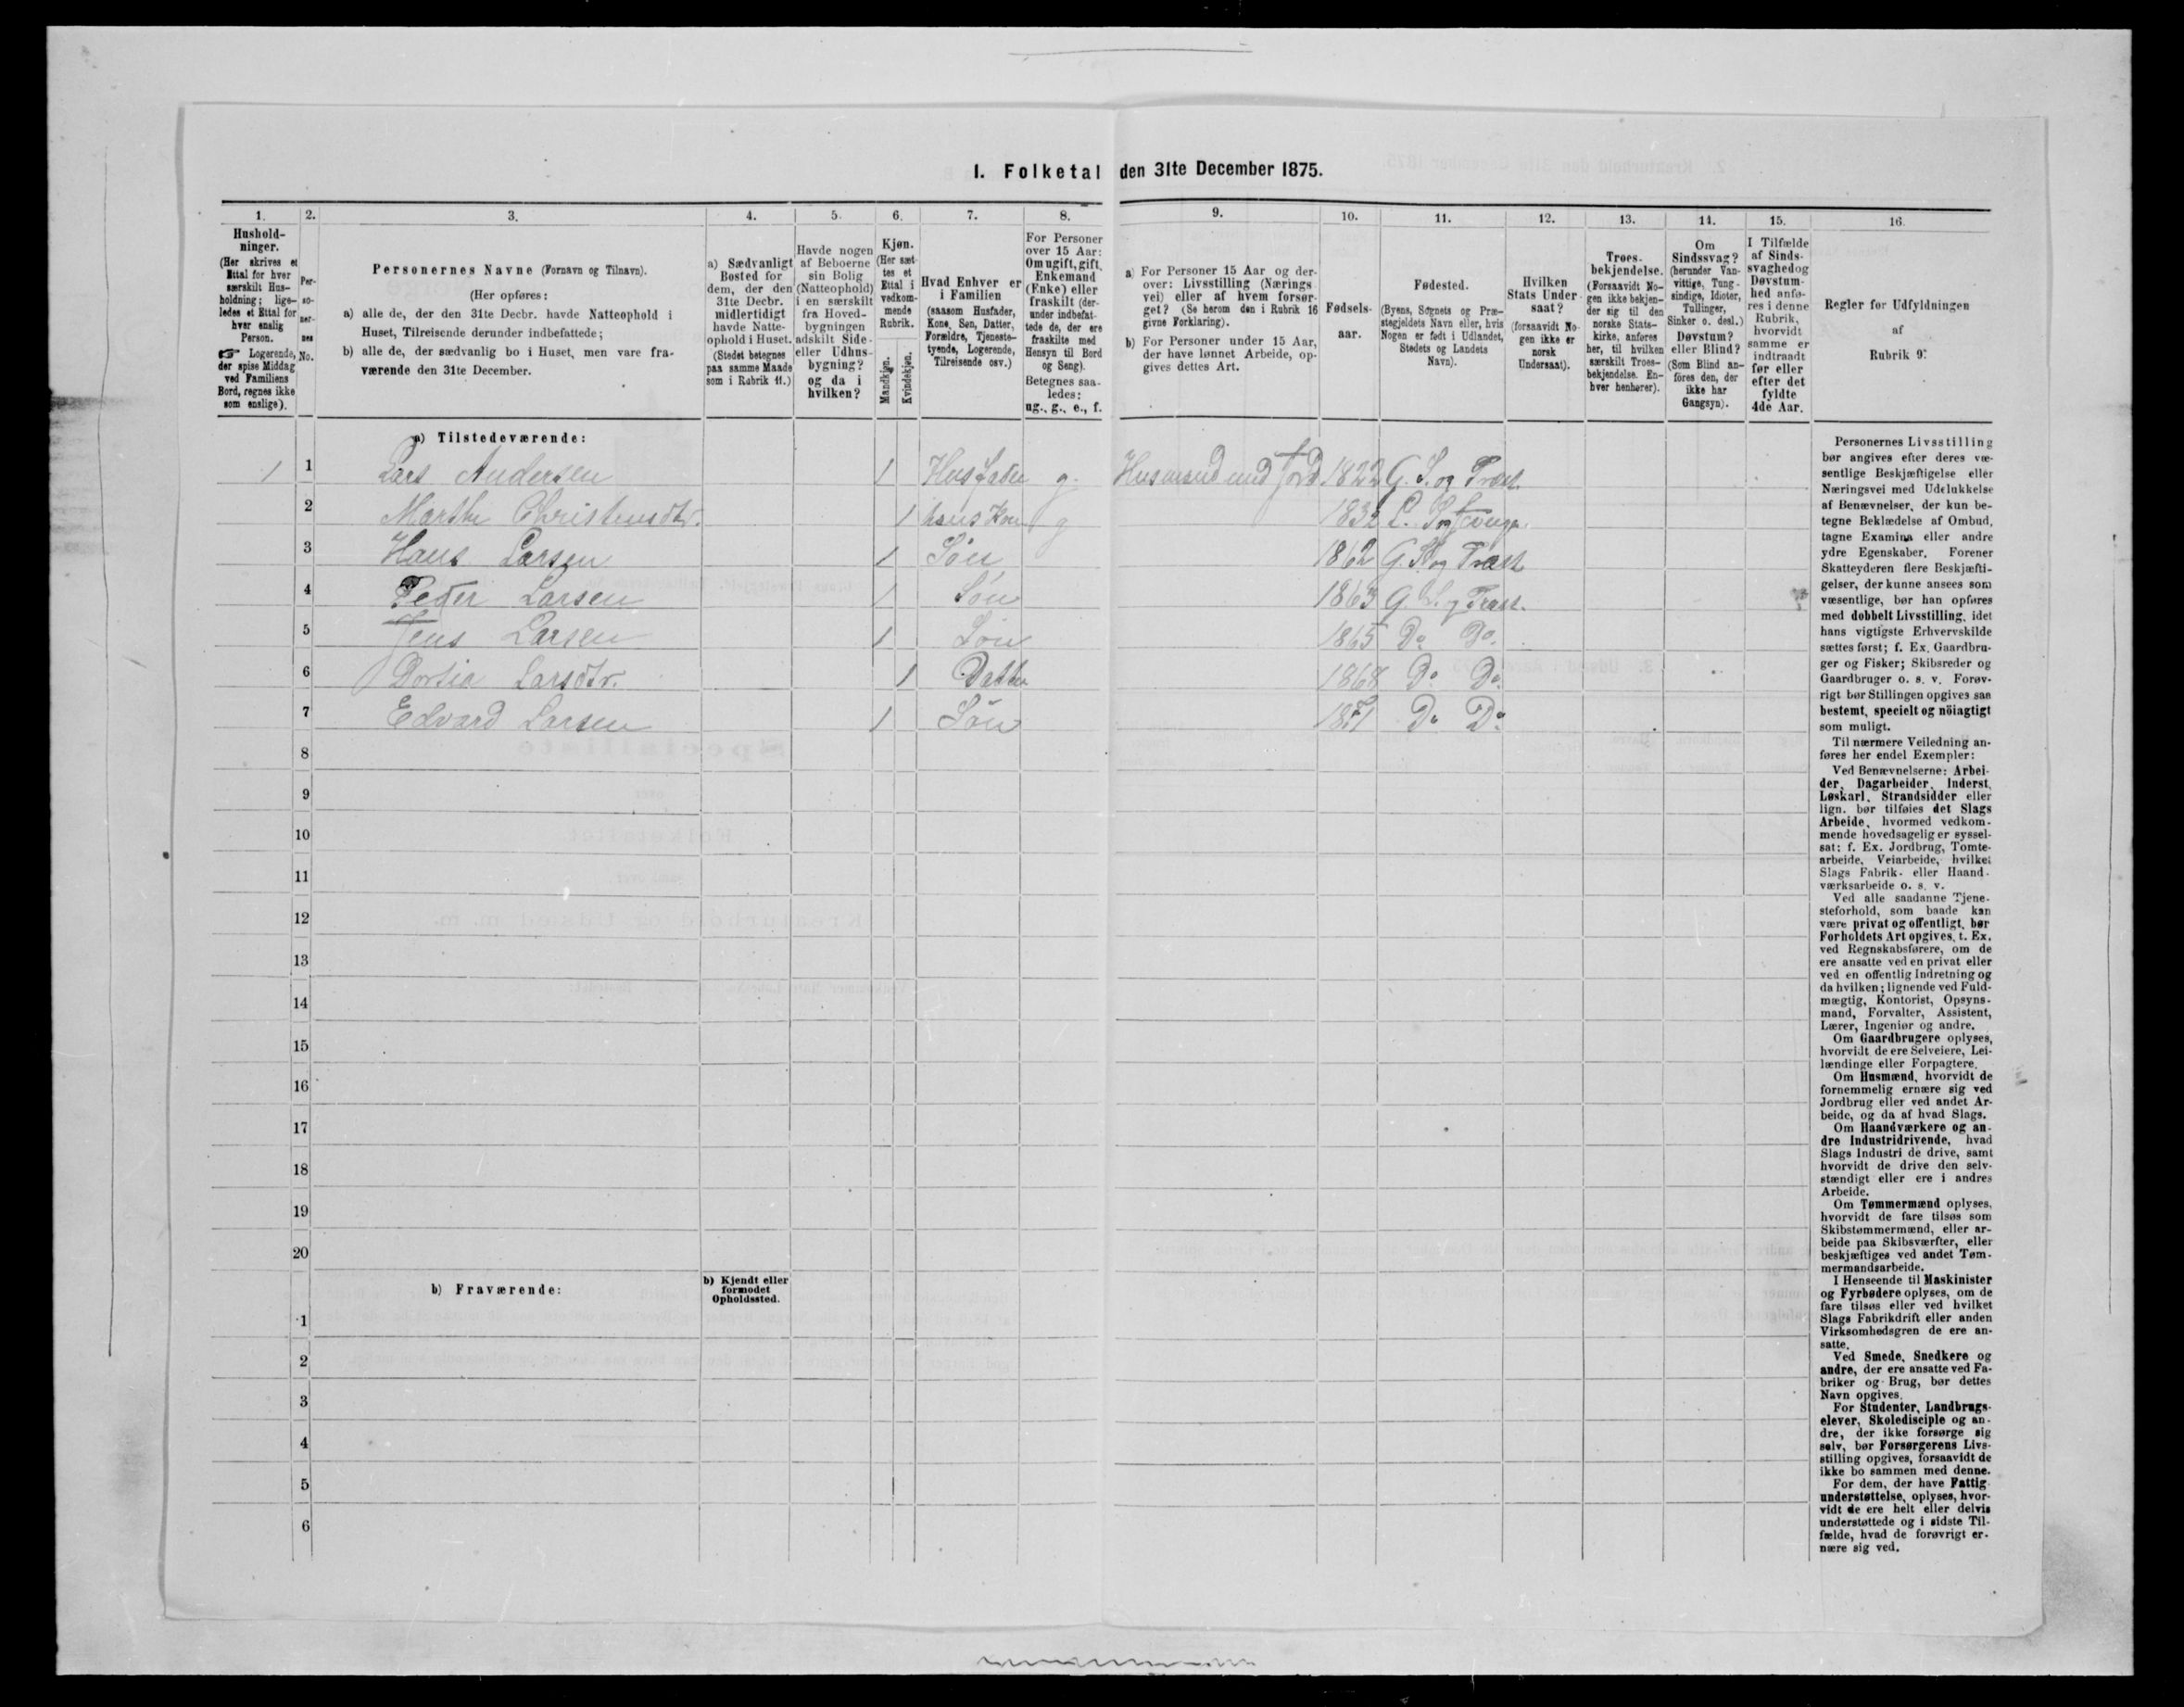 I. Folketal den 31te December 1875.
1. 2. 3. 4. 5. 6. 7. 8. 9. 10. 11. 12. 13. 14. 15. 16.
Hushold-
ninger.
(Her skrives et
Ettal for hver
særskilt Hus-
holdning; lige-
ledes et Ettal for
hver enslig
Person.
☞ Logerende,
der spise Middag
ved Familiens
Bord, regnes ikke
som enslige).
Per-
so-
ner-
nes
No.
Personernes Navne (Fornavn og Tilnavn).
(Her opføres:
a) alle de, der den 31te Decbr. havde Natteophold i
Huset, Tilreisende derunder indbefattede;
b) alle de, der sædvanlig bo i Huset, men vare fra-
værende den 31te December.
a) Sædvanligt
Bosted for
dem, der den
31te Decbr.
midlertidigt
havde Natte-
ophold i Huset.
(Stedet betegnes
paa samme Maade
som i Rubrik 11.)
Havde nogen
af Beboerne
sin Bolig
(Natteophold)
i en særskilt
fra Hoved-
bygningen
adskilt Side-
eller Udhus-
bygning?
og da i
hvilken?
Kjøn.
(Her sæt-
tes et
Ettal i
vedkom-
mende
Rubrik.
Mandkjøn.
Kvindekjøn.
Hvad Enhver er
i Familien
(saasom Husfader,
Kone, Søn, Datter,
Forældre, Tjeneste-
tyende, Logerende,
Tilreisende osv.)
For Personer
over 15 Aar:
Om ugift, gift,
Enkemand
(Enke) eller
fraskilt (der-
under indbefat-
tede de, der ere
fraskilte med
Hensyn til Bord
og Seng).
Betegnes saa-
ledes:
ug., g., e., f.
a) For Personer 15 Aar og der-
over: Livsstilling (Nærings-
vei) eller af hvem forsør-
get? (Se herom den i Rubrik 16
givne Forklaring).
b) For Personer under 15 Aar,
der have lønnet Arbeide, op-
gives dettes Art.
Fødsels-
aar.
Fødested.
(Byens, Sognets og Præ-
stegjeldets Navn eller, hvis
Nogen er født i Udlandet,
Stedets og Landets
Navn).
Hvilken
Stats Under-
saat?
(forsaavidt No-
gen ikke er
norsk
Undersaat).
Troes-
bekjendelse.
(Forsaavidt No-
gen ikke bekjen-
der sig til den
norske Stats-
kirke, anføres
her, til hvilken
særskilt Troes-
bekjendelse. En-
hver henhører).
Om
Sindssvag?
(herunder Van-
vittige, Tung-
sindige, Idioter,
Tullinger,
Sinker o. desl.)
Døvstum?
eller Blind?
(Som Blind an-
föres den, der
ikke har
Gangsyn).
I Tilfælde
af Sinds-
svaghed og
Døvstum-
hed anfø-
res i denne
Rubrik,
hvorvidt
samme er
indtraadt
før eller
efter det
fyldte
4de Aar.
Regler for Udfyldningen
af
Rubrik 9.
a) Tilstedeværende:
1 1 Lars Andersen 1 Husfader g. Husmand med Jord 1822 G. S. og Præst.
2 Marthe Christensdtr. 1 hans Kone g 1832 L. S. og
3 Hans Larsen 1 Søn 1862 G. S. og Præst
4 Peder Larsen 1 Søn 1863 G. S. og Præst.
5 Jens Larsen 1 Søn 1865 Do Do.
6 Dorthia Larsdtr. 1 Datter 1868 Do Do.
7 Edvard Larsen 1 Søn 1871 Do Do
8
9
10
11
12
13
14
15
16
17
18
19
20
b) Fraværende:
b) Kjendt eller
formodet
Opholdssted.
1
2
3
4
5
6
Personernes Livsstilling
bør angives efter deres væ-
sentlige Beskjæftigelse eller
Næringsvei med Udelukkelse
af Benævnelser, der kun be-
tegne Beklædelse af Ombud,
tagne Examina eller andre
ydre Egenskaber. Forener
Skatteyderen flere Beskjæfti-
gelser, der kunne ansees som
væsentlige, bør han opføres
med dobbelt Livsstilling, idet
hans vigtigste Erhvervskilde
sættes først; f. Ex. Gaardbru-
ger og Fisker; Skibsreder og
Gaardbruger o. s. v. Forøv-
rigt bør Stillingen opgives saa
bestemt, specielt og nöiagtigt
som muligt.
Til nærmere Veiledning an-
føres her endel Exempler:
Ved Benævnelserne: Arbei-
der, Dagarbeider, Inderst,
Løskarl, Strandsidder eller
lign. bør tilføies det Slags
Arbeide, hvormed vedkom-
mende hovedsagelig er syssel-
sat; f. Ex. Jordbrug, Tomte-
arbeide, Veiarbeide, hvilket
Slags Fabrik- eller Haand-
værksarbeide o. s. v.
Ved alle saadanne Tjene-
steforhold, som baade kan
være privat og offentligt, bør
Forholdets Art opgives, t. Ex.
ved Regnskabsførere, om de
ere ansatte ved en privat eller
ved en offentlig Indretning og
da hvilken; lignende ved Fuld-
mægtig, Kontorist, Opsyns-
mand, Forvalter, Assistent,
Lærer, Ingeniør og andre.
Om Gaardbrugere oplyses,
hvorvidt de ere Selveiere, Lei-
lændinge eller Forpagtere.
Om Husmænd, hvorvidt de
fornemmelig ernære sig ved
Jordbrug eller ved andet Ar-
beide, og da af hvad Slags.
Om Haandværkere og an-
dre Industridrivende, hvad
Slags Industri de drive, samt
hvorvidt de drive den selv-
stændigt eller ere i andres
Arbeide.
Om Tømmermænd oplyses,
hvorvidt de fare tilsøs som
Skibstømmermænd, eller ar-
beide paa Skibsværfter, eller
beskjæftiges ved andet Tøm-
mermandsarbeide.
I Henseende til Maskinister
og Fyrbødere oplyses, om de
fare tilsøs eller ved hvilket
Slags Fabrikdrift eller anden
Virksomhedsgren de ere an-
satte.
Ved Smede, Snedkere og
andre, der ere ansatte ved Fa-
briker og Brug, bør dettes
Navn opgives.
For Studenter, Landbrugs-
elever, Skoledisciple og an-
dre, der ikke forsørge sig
selv, bør Forsørgerens Livs-
stilling opgives, forsaavidt de
ikke bo sammen med denne.
For dem, der have Fattig-
understøttelse, oplyses, hvor-
vidt de ere helt eller delvis
understøttede og i sidste Til-
fælde, hvad de forøvrigt er-
nære sig ved.